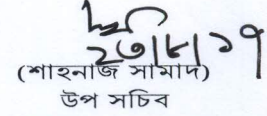 ২৩।৮।১৭
(শাহনাজ সামাদ)
উপ সচিব